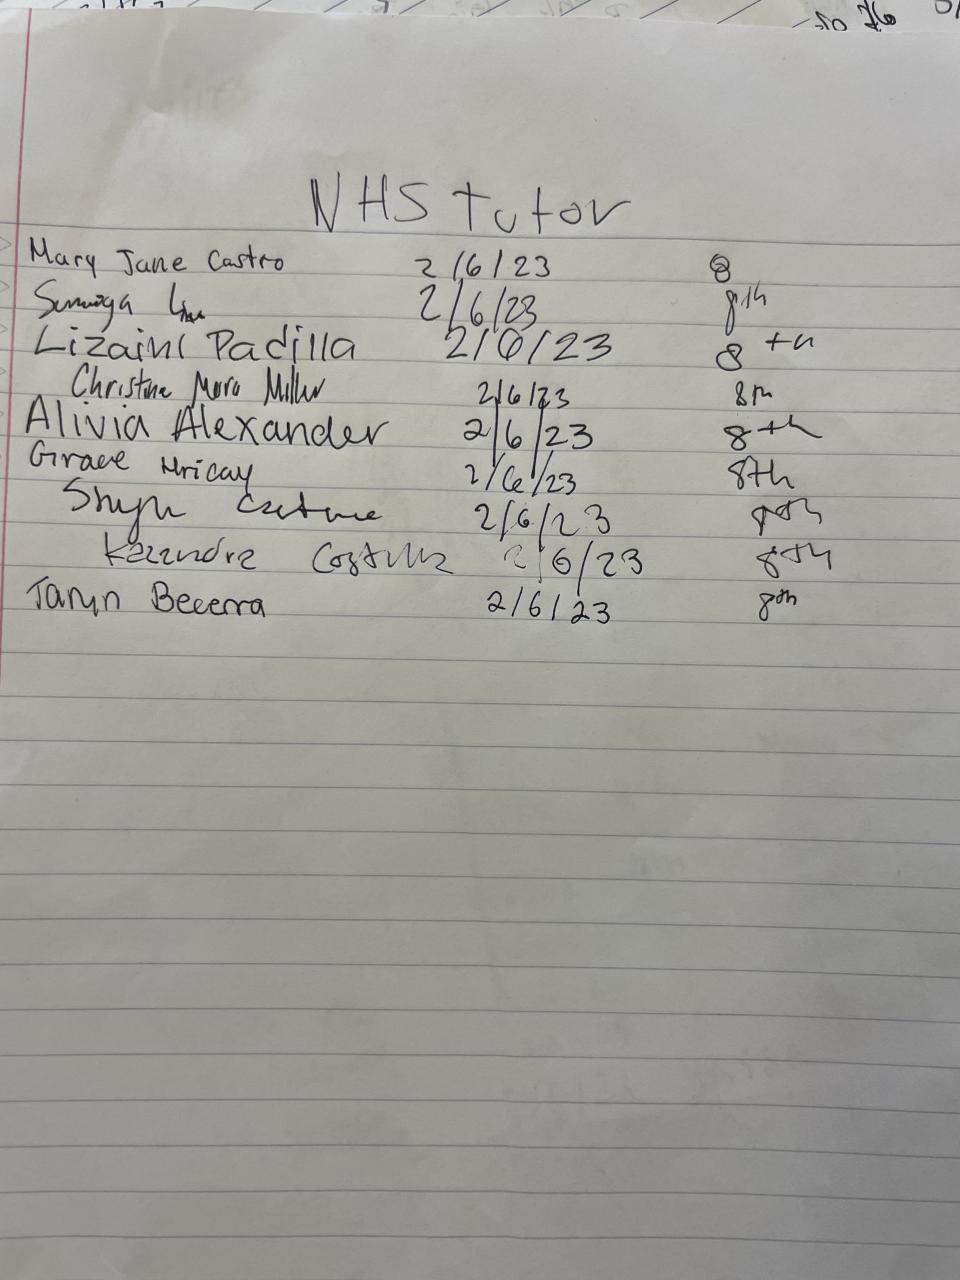 50 76
NHS Tutor
Mary Jane Castro 2/6/23 8
2/6/23 8th
Padilla 2/6/23 8th
Christine Mora Miller 2/6/23 8th
Alivia Alexander 2/6/23 8th
Grace 2/6/23 8th
2/6/23 8th
2/6/23 8th
Taryn Becerra 2/6/23 8th